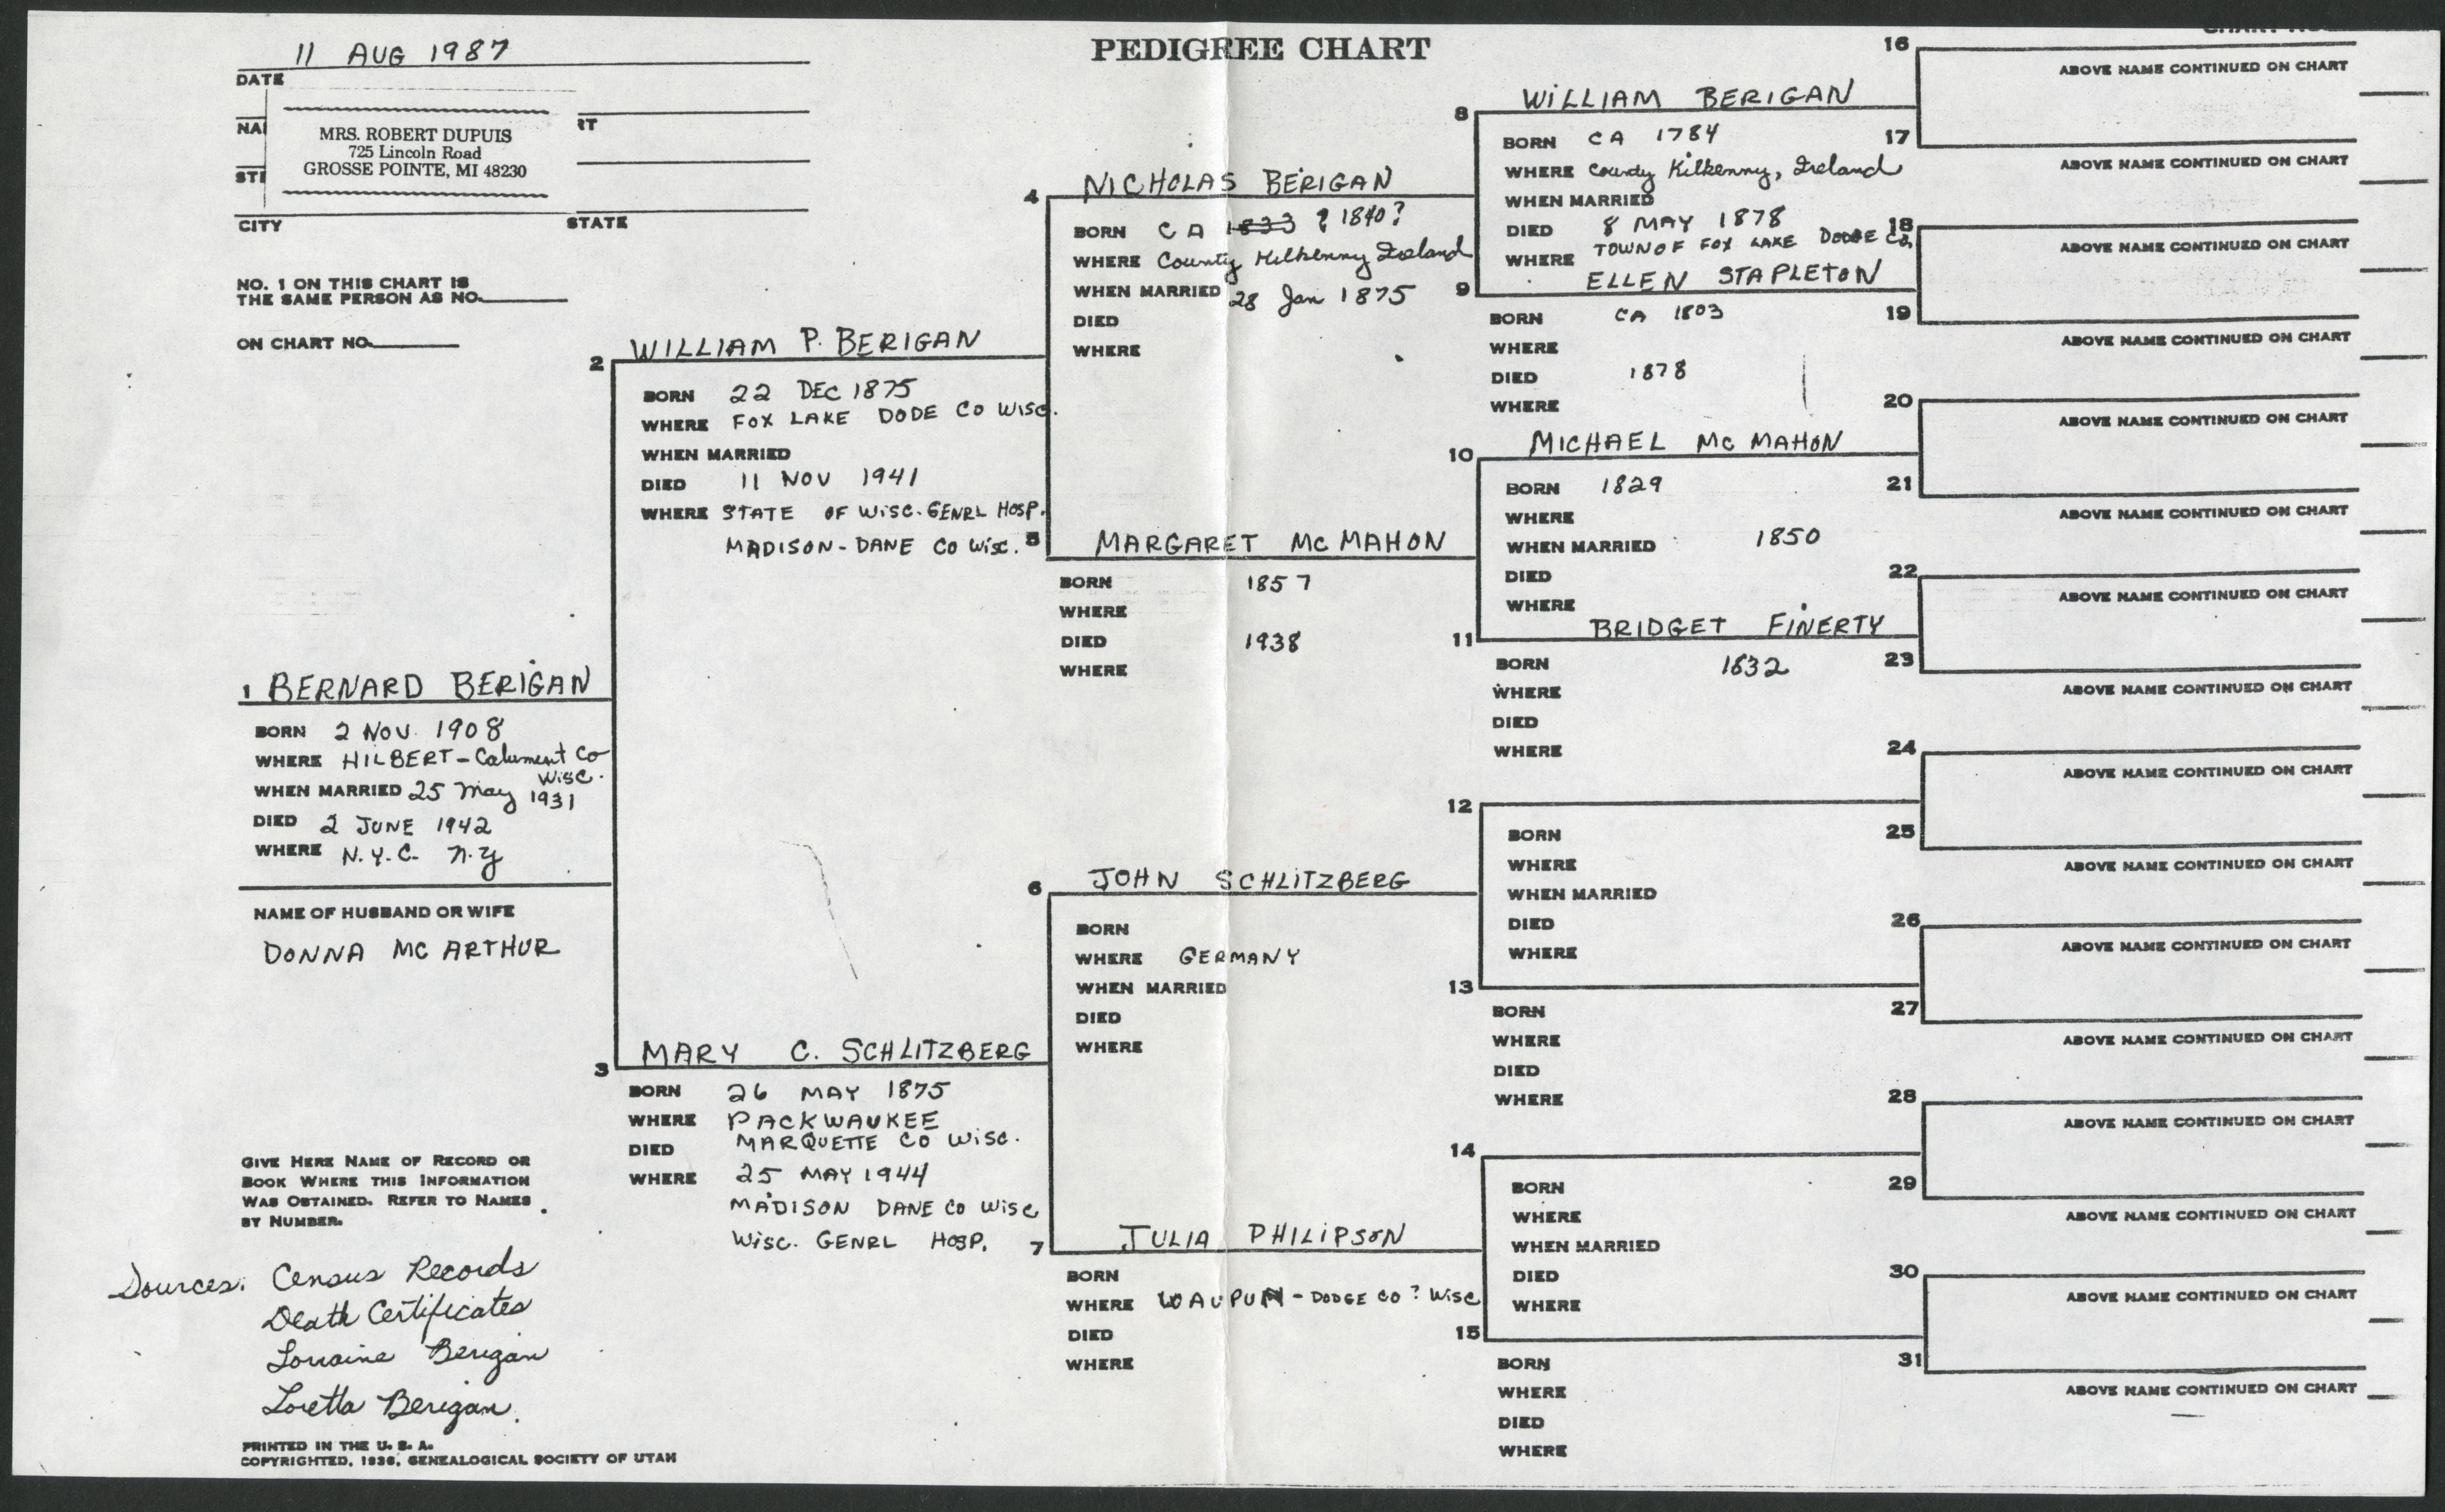 11 AUG 1987
DATE
NA
RT
MRS. ROBERT DUPUIS
725 Lincoln Road
GROSSE POINTE, MI 48230
ST
CITY STATE
NO. 1 ON THIS CHART IS
THE SAME PERSON AS NO.
ON CHART NO.
PEDIGREE CHART
1 BERNARD BERIGAN
BORN 2 NOV. 1908
WHERE HILBERT - Calument Co
Wisc.
WHEN MARRIED 25 May 1931
DIED 2 JUNE 1942
WHERE N.Y.C. N.Y
NAME OF HUSBAND OR WIFE
DONNA MC ARTHUR
GIVE HERE NAME OF RECORD OR
BOOK WHERE THIS INFORMATION
WAS OBTAINED. REFER TO NAMES
BY NUMBER.
Sources: Census Records
Death Certificates
Lorraine Berigan
Loretta Berigan.
PRINTED IN THE U. S. A.
COPYRIGHTED, 1936, GENEALOGICAL SOCIETY OF UTAH
2 WILLIAM P. BERIGAN
BORN 22 DEC 1875
WHERE FOX LAKE DODE CO WISC.
WHEN MARRIED
DIED 11 NOV 1941
WHERE STATE OF WISC. GENRL HOSP.
MADISON - DANE CO WISC.
3 MARY C. SCHLITZBERG
BORN 26 MAY 1875
WHERE PACKWAUKEE
MARQUETTE CO WISC.
DIED
WHERE 25 MAY 1944
MADISON DANE CO WISC
WISC. GENRL HOSP.
4 NICHOLAS BERIGAN
BORN CA 1833 ? 1840?
WHERE County Kilkenny Ireland
WHEN MARRIED 28 Jan 1875
DIED
WHERE
5 MARGARET MC MAHON
BORN 1857
WHERE
DIED 1938
WHERE
6 JOHN SCHLITZBERG
BORN
WHERE GERMANY
WHEN MARRIED
DIED
WHERE
7 JULIA PHILIPSON
BORN
WHERE WAUPUN - DODGE CO? WISC
DIED
WHERE
8 WILLIAM BERIGAN
BORN CA 1784
WHERE County Kilkenny, Ireland
WHEN MARRIED
DIED 8 MAY 1878
WHERE TOWN OF FOX LAKE DODGE CO,
9 ELLEN STAPLETON
BORN CA 1803
WHERE
DIED 1878
WHERE
10 MICHAEL MC MAHON
BORN 1829
WHERE
WHEN MARRIED 1850
DIED
WHERE
11 BRIDGET FINERTY
BORN 1832
WHERE
DIED
WHERE
12
BORN
WHERE
WHEN MARRIED
DIED
WHERE
13
BORN
WHERE
DIED
WHERE
14
BORN
WHERE
WHEN MARRIED
DIED
WHERE
15
BORN
WHERE
DIED
WHERE
16
ABOVE NAME CONTINUED ON CHART
17
ABOVE NAME CONTINUED ON CHART
18
ABOVE NAME CONTINUED ON CHART
19
ABOVE NAME CONTINUED ON CHART
20
ABOVE NAME CONTINUED ON CHART
21
ABOVE NAME CONTINUED ON CHART
22
ABOVE NAME CONTINUED ON CHART
23
ABOVE NAME CONTINUED ON CHART
24
ABOVE NAME CONTINUED ON CHART
25
ABOVE NAME CONTINUED ON CHART
26
ABOVE NAME CONTINUED ON CHART
27
ABOVE NAME CONTINUED ON CHART
28
ABOVE NAME CONTINUED ON CHART
29
ABOVE NAME CONTINUED ON CHART
30
ABOVE NAME CONTINUED ON CHART
31
ABOVE NAME CONTINUED ON CHART